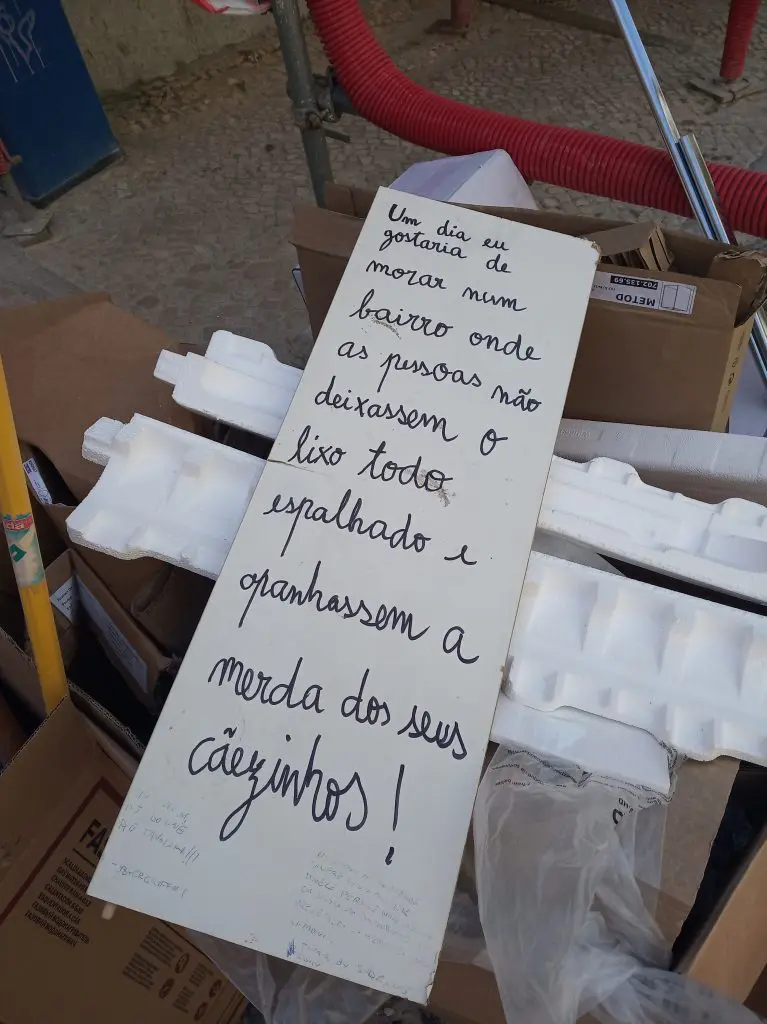 Um dia eu
gostaria de
morar num
bairro onde
as pessoas não
deixassem o
lixo todo
espalhado e
apanhassem a
merda dos seus
cãezinhos!
METOD
702.135.69